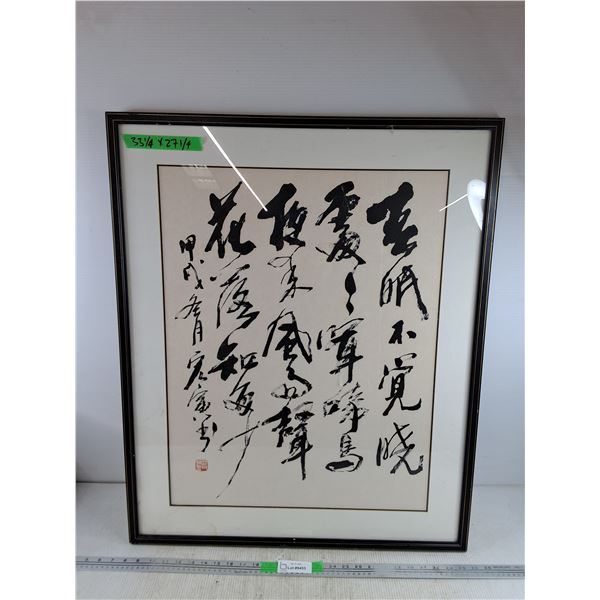 33 1/4 x 27 1/4
春眠不覺晓
處々聞啼鳥
夜来風雨聲
花落知多少
甲戌冬月